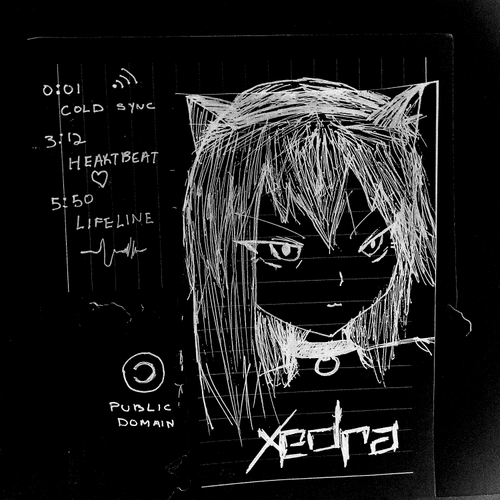 0:01
COLD SYNC
3:12
HEARTBEAT
5:50
LIFELINE
PUBLIC
DOMAIN
xedra